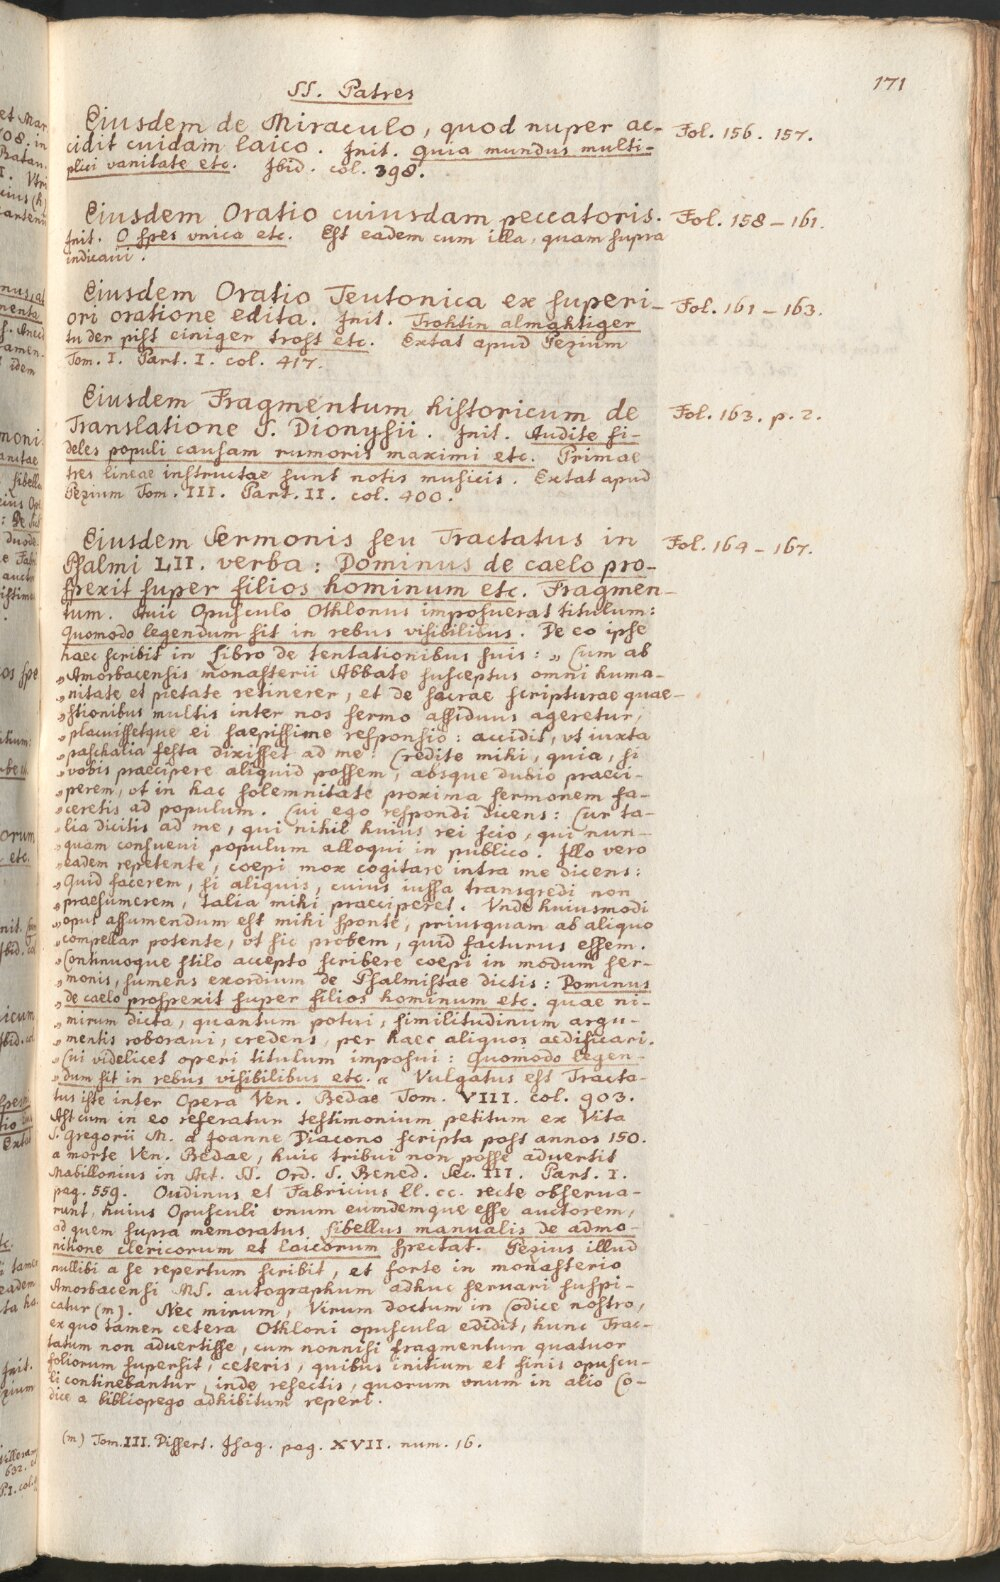 171
SS. Patres
Eiusdem de Miraculo, quod nuper ac- Fol. 156. 157.
cidit cuidam laico. Init. Quia mundus multi-
plici vanitate etc. Ibid. col. 398.
Eiusdem Oratio cuiusdam peccatoris. Fol. 158 – 161.
Init. O spes vnica etc. Est eadem cum illa, quam supra
indicaui.
Eiusdem Oratio Teutonica ex superi- Fol. 161 – 163.
ori oratione edita. Init. Trohtin almahtiger
tu der pist einiger trost etc. Extat apud Pezium
Tom. I. Part. I. col. 417.
Eiusdem Fragmentum historicum de Fol. 163. p. 2.
Translatione S. Dionysii. Init. Audite fi-
deles populi causam rumoris maximi etc. Primae
tres lineae instructae sunt notis musicis. Extat apud
Pezium Tom. III. Part. II. col. 400.
Eiusdem Sermonis seu Tractatus in Fol. 164 – 167.
Psalmi LII. verba: Dominus de caelo pro-
spexit super filios hominum etc. Fragmen-
tum. Huic Opusculo Othlonus imposuerat titulum:
Quomodo legendum sit in rebus visibilibus. De eo ipse
haec scribit in Libro de tentationibus suis: „ Cum ab
„ Amorbacensis monasterii Abbate susceptus omni huma-
„ nitate et pietate retinerer, et de sacrae scripturae quae-
„ stionibus multis inter nos sermo assiduus ageretur,
„ placuissetque ei saepissime responsio: accidit, vt iuxta
„ paschalia festa dixisset ad me: Credite mihi, quia, si
„ vobis praecipere aliquid possem, absque dubio praeci-
„ perem, vt in hac solemnitate proxima sermonem fa-
„ ceretis ad populum. Cui ego respondi dicens: Cur ta-
„ lia dicitis ad me, qui nihil huius rei scio, qui nun-
„ quam consueui populum alloqui in publico. Illo vero
„ eadem repetente, coepi mox cogitare intra me dicens:
„ Quid facerem, si aliquis, cuius iussa transgredi non
„ praesumerem, talia mihi praeciperet. Vnde huiusmodi
„ opus assumendum est mihi sponte, priusquam ab aliquo
„ compellar potente, vt sic probem, quid facturus essem.
„ Continuoque stilo accepto scribere coepi in modum ser-
„ monis, sumens exordium de Psalmistae dictis: Dominus
„ de caelo prospexit super filios hominum etc. quae ni-
„ mirum dicta, quantum potui, similitudinum argu-
„ mentis roboraui, credens, per haec aliquos aedificari.
„ Cui videlicet operi titulum imposui: Quomodo legen-
„ dum sit in rebus visibilibus etc. “ Vulgatus est Tracta-
tus iste inter Opera Ven. Bedae Tom. VIII. col. 903.
Ast cum in eo referatur testimonium petitum ex Vita
S. Gregorii M. a Joanne Diacono scripta post annos 150.
a morte Ven. Bedae, huic tribui non posse aduertit
Mabillonius in Act. SS. Ord. S. Bened. Sec. III. Part. I.
pag. 559. Oudinus et Fabricius ll. cc. recte obserua-
runt, huius Opusculi vnum eumdemque esse auctorem,
ad quem supra memoratus Libellus manualis de admo-
nitione clericorum et laicorum spectat. Pezius illud
nullibi a se repertum scribit, et forte in monasterio
Amorbacensi MS. autographum adhuc seruari suspi-
catur (m). Nec mirum, Virum doctum in Codice nostro,
ex quo tamen cetera Othloni opuscula edidit, hunc Trac-
tatum non aduertisse, cum nonnisi fragmentum quatuor
foliorum supersit, ceteris, quibus initium et finis opuscu-
li continebantur, inde resectis, quorum vnum in alio Co-
dice a bibliopego adhibitum reperi.
(m) Tom. III. Dissert. Isag. pag. XVII. num. 16.